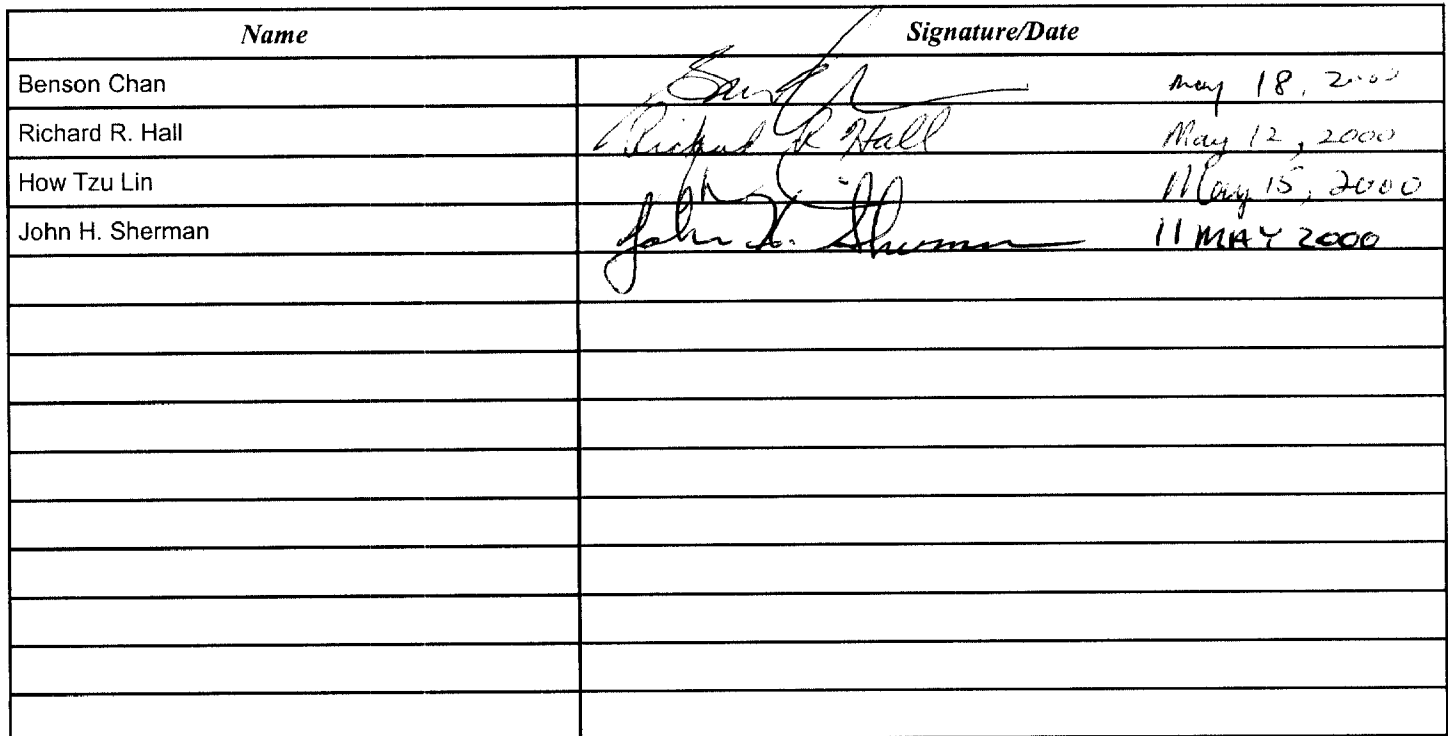 Name Signature/Date
Benson Chan May 18, 2000
Richard R. Hall Richard R Hall May 12, 2000
How Tzu Lin May 15, 2000
John H. Sherman John H. Sherman 11 MAY 2000